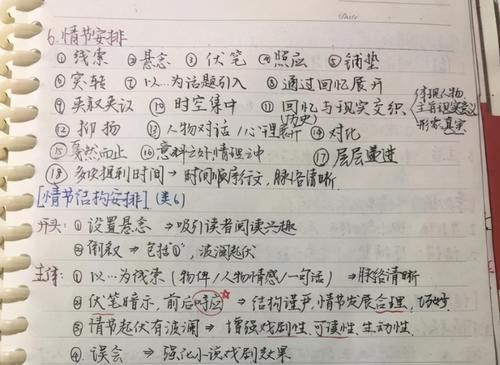 Date
6.情节安排
①线索 ②悬念 ③伏笔 ④照应 ⑤铺垫
⑥突转 ⑦以…为话题引入 ⑧通过回忆展开
⑨夹叙夹议 ⑩时空集中 ⑪回忆与现实交织
(历史)
⑫抑扬 ⑬人物对话/心理展开 ⑭对比
⑮戛然而止 ⑯意料之外情理之中 ⑰层层递进
⑱多次提到时间→时间顺序行文,脉络清晰
[情节结构安排](类6)
开头:①设置悬念⇒吸引读者阅读兴趣
②倒叙→包括"①",波澜起伏
主体:①以…为线索(物件/人物情感/一句话)⇒脉络清晰
②伏笔暗示,前后呼应⇒结构严谨,情节发展合理,
③情节起伏有波澜⇒增强戏剧性,可读性,生动性.
④误会⇒强化小说戏剧效果